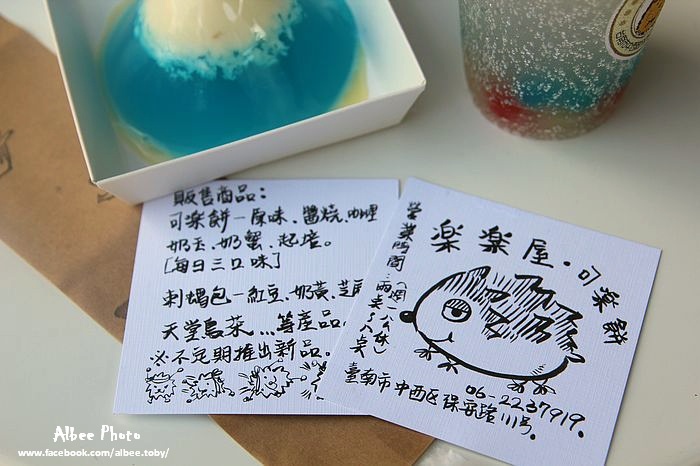 販售商品：
可楽餅－原味、醬燒、咖哩
奶玉、奶蟹、起培。
[每日三口味]
刺蝟包－紅豆、奶黃、芝
天堂鳥茶…等產品
※不定期推出新品。
楽楽屋・可楽餅
營業時間：兩点~八点
06-2237919.
臺南市中西区保安路111号。
Albee Photo
www.facebook.com/albee.toby/